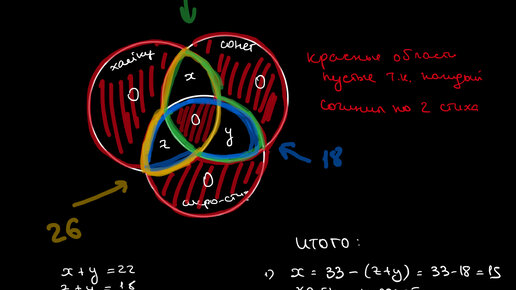 хайку
сонет
x
0
0
красные области
пустые т.к. каждый
сочинил по 2 стиха
0
z
y
18
0
акро-стих
26
ИТОГО:
x + y = 22
1) x = 33 − (z+y) = 33-18 = 15
z + y = 18